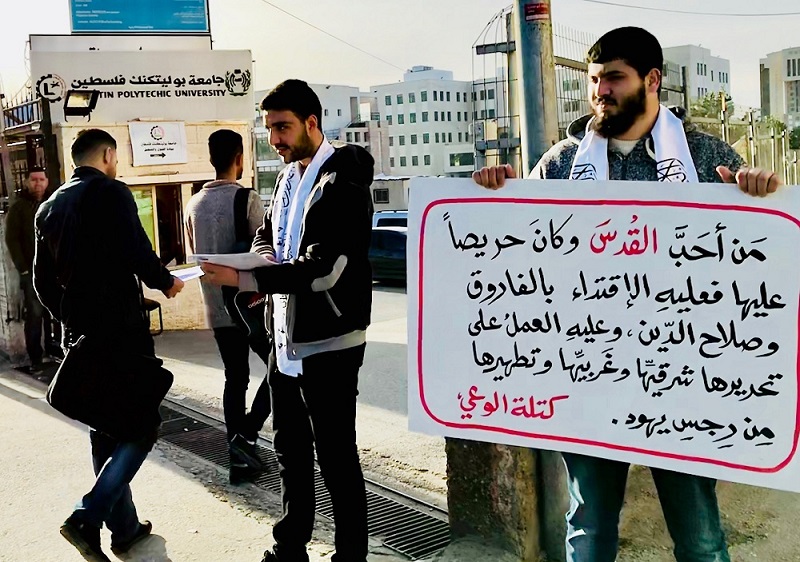 جامعة بوليتكنك فلسطين
TIN POLYTECHIC UNIVERSITY
مَن أحَبَّ القُدسَ وكانَ حريصاً
عليها فعليهِ الإقتداء بالفاروق
وصلاح الدّين، وعليهِ العملُ على
تحريرها شرقيّها وغَربيّها وتطهيرها
مِن رِجسِ يهود.
كتلة الوعي